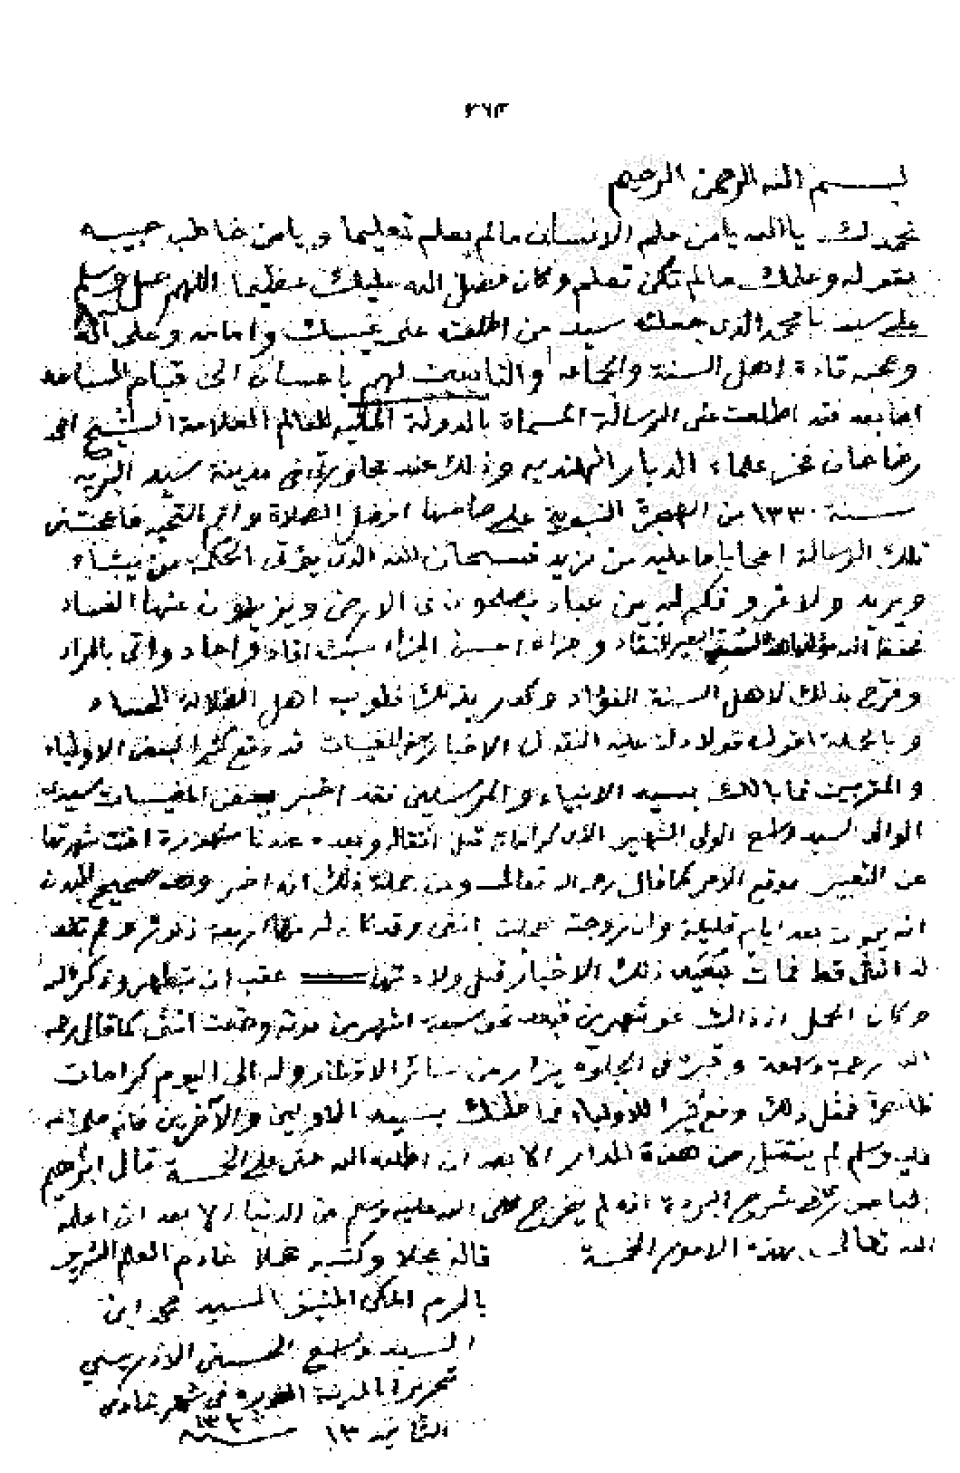 ٣٦٣
بسم الله الرحمن الرحيم
نحمدك يا الله يا من علم الانسان مالم يعلم تعليما ويا من خاطب حبيبه
بقوله وعلمك مالم تكن تعلم وكان فضل الله عليك عظيما اللهم صل وسلم
على سيدنا محمد الذى جعلته سيد من اطلعت على غيبك وامامه وعلى اله
وصحبه قادة اهل السنة والجماعه والتابعين لهم باحسان الى قيام الساعه
اما بعد فقد اطلعت على الرسالة المسماة بالدولة المكيه للعالم العلامة الشيخ احمد
رضا خان من علماء الديار الهنديه وذلك عند مجاورتى فى مدينة سيد البريه
سنة ١٣٣٠ من الهجرة النبوية على صاحبها افضل الصلاة واتم التحيه فاعجبتنى
تلك الرسالة اعجابا ما عليه من مزيد فسبحان الله الذى يؤتى الحكمة من يشاء
ويريد ولا غرو فكم لله من عباد يصلحون فى الارض ويزيلون عنها الفساد
حفظ الله مؤلفها النقاد وجزاه احسن الجزاء حيث افاد واجاد واتى بالمراد
وفرح بذلك لاهل السنة الفؤاد وكدر بذلك قلوب اهل الضلالة
وبالجملة اقول قولا دلة عليه النقول الاخبار ببعض المغيبات قد وقع كثيرا لبعض الاولياء
والمقربين فما بالك بسيد الانبياء والمرسلين فقد اخبر ببعض المغيبات سيدى
الوالد السيد واسع الولى الشهير الذى كراماته قبل انتقاله وبعده عندنا مشهورة اغنت شهرتها
عن التعبير موقع الامر كما قال رحمه الله تعالى ومن جملة ذلك انه اخبر وهو صحيح البدن
انه يموت بعد ايام قليلة وان زوجته حملت بانثى وقد كان له منها اربعة ذكور ولم تلد
له انثى قط فمات بعيد ذلك الاخبار قبل ولادتها عقب ان تطهر وذكر الله
وكان الحمل اذ ذاك نحو شهرين فبعد نحو سبعة اشهر من موته وضعت انثى كما قال رحمه
الله رحمة واسعة وقبره فى يزار من سائر الاقطار وله الى اليوم كرامات
ظاهرة فمثل ذلك وقع كثيرا للاولياء فما ظنك بسيد الاولين والآخرين فانه صلى الله
عليه وسلم لم ينتقل من هذه الدار الا بعد ان اطلعه الله حتى على الخمسة قال ابراهيم
الباجورى فى شرح البردة انه لم يخرج صلى الله عليه وسلم من الدنيا الا بعد ان اعلمه
الله تعالى بهذه الامور الخمسة
قاله عجلا وكتبه خجلا خادم العلم الشريف
بالحرم المكى المنيف السيد محمد ابن
السيد واسع الحسينى الادريسي
تحريرا بالمدينة المنوره فى شهر جمادى
الثانيه ١٣ سنة ١٣٣٠